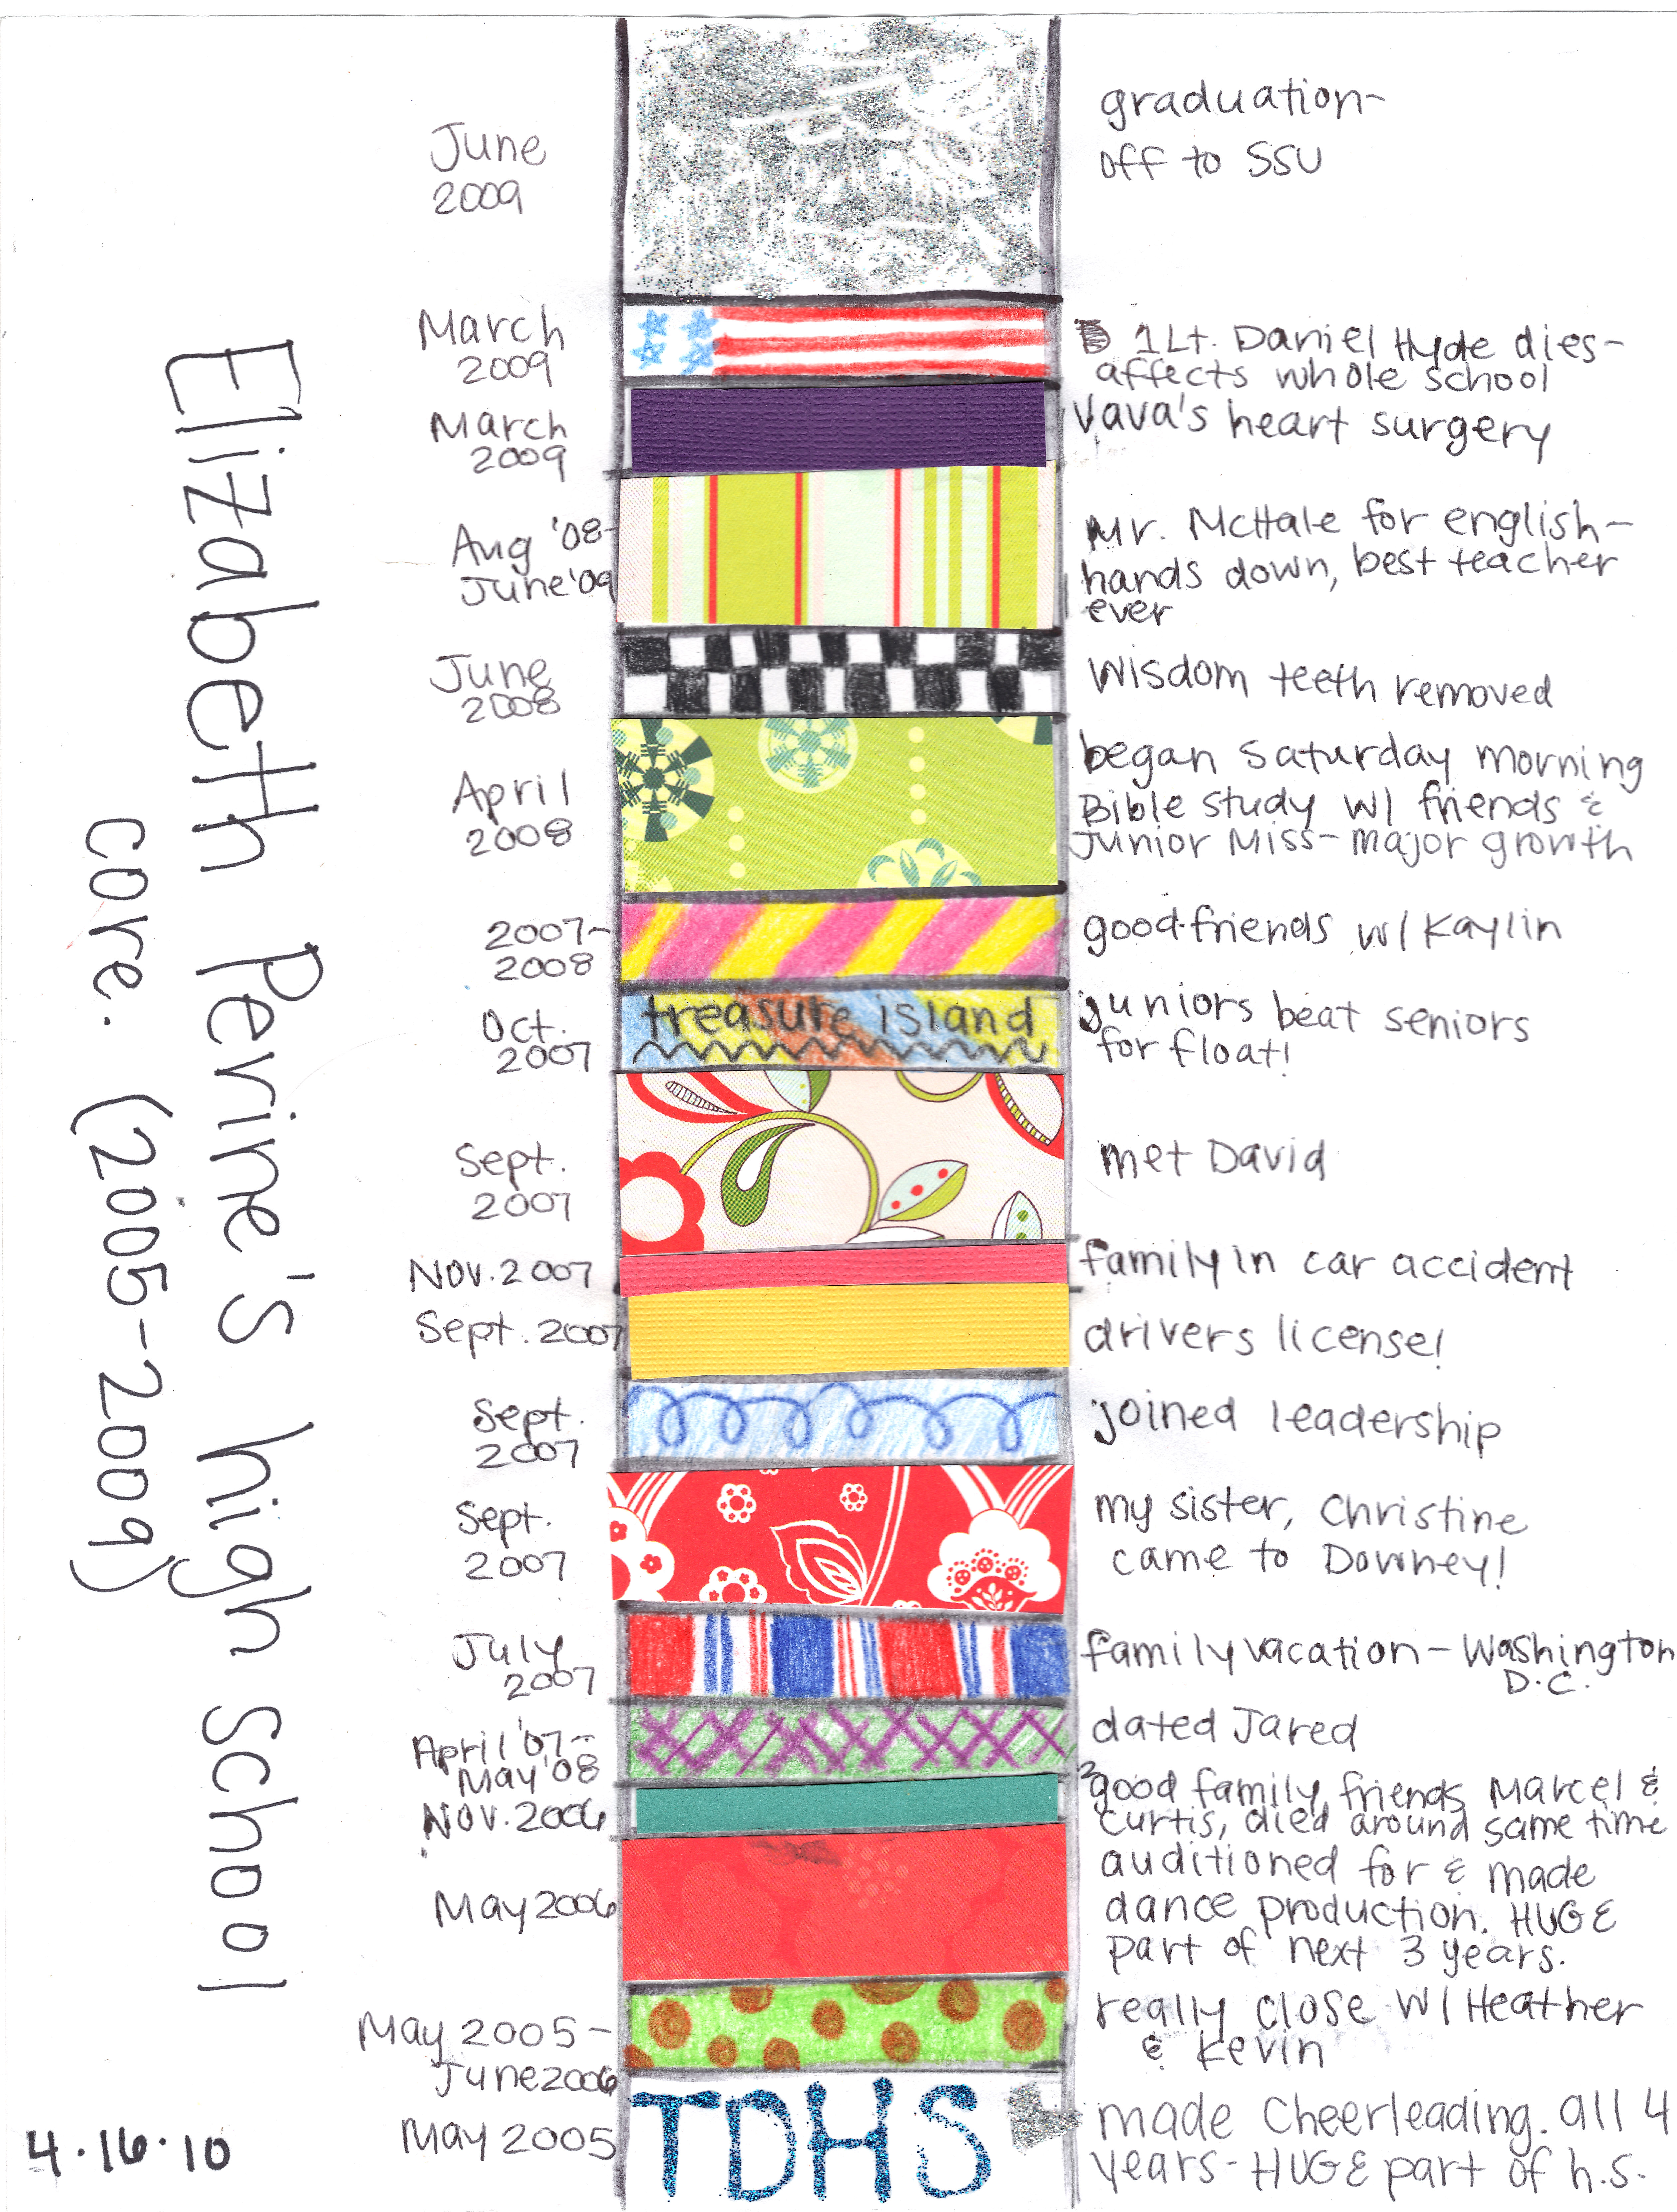 Elizabeth Perine's high school
core. (2005-2009)
June
2009
graduation-
off to SSU
March
2009
1Lt. Daniel Hyde dies-
affects whole school
March
2009
Vava's heart surgery
Aug '08-
June '09
Mr. McHale for english-
hands down, best teacher
ever
June
2008
Wisdom teeth removed
April
2008
began Saturday morning
Bible study w/ friends &
Junior Miss- major growth
2007-
2008
good friends w/ Kaylin
Oct.
2007
treasure island
juniors beat seniors
for float!
Sept.
2007
met David
Nov. 2007
family in car accident
Sept. 2007
drivers license!
Sept.
2007
joined leadership
Sept.
2007
my sister, Christine
came to Downey!
July
2007
family vacation - Washington
D.C.
April '07-
May '08
dated Jared
Nov. 2006
2 good family friends, Marcel &
Curtis, died around same time
May 2006
auditioned for & made
dance production. HUGE
part of next 3 years.
May 2005-
June 2006
really close w/ Heather
& Kevin
May 2005
TDHS
made Cheerleading. all 4
years- HUGE part of h.s.
4.16.10